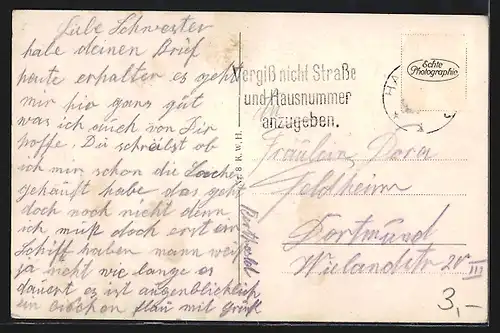 Liebe Schwester
habe deinen Brief
heute erhalten es geht
mir hir ganz gut
was ich auch von Dir
hoffe. Du schreibst ob
ich mir schon die Sachen
gekauft habe das geht
doch noch nicht denn
ich muß doch erst ein
Schiff haben mann weiß
ja nicht wie lange es
dauert es ist augenblicklich
ein bischen flau mit Gruß
Berthold
R.W.H.
Vergiß nicht Straße
und Hausnummer
anzugeben.
Echte
Photographie
HA
Fräulein Dora
Feldheim
Dortmund
Wielandstr 20 III
3,-